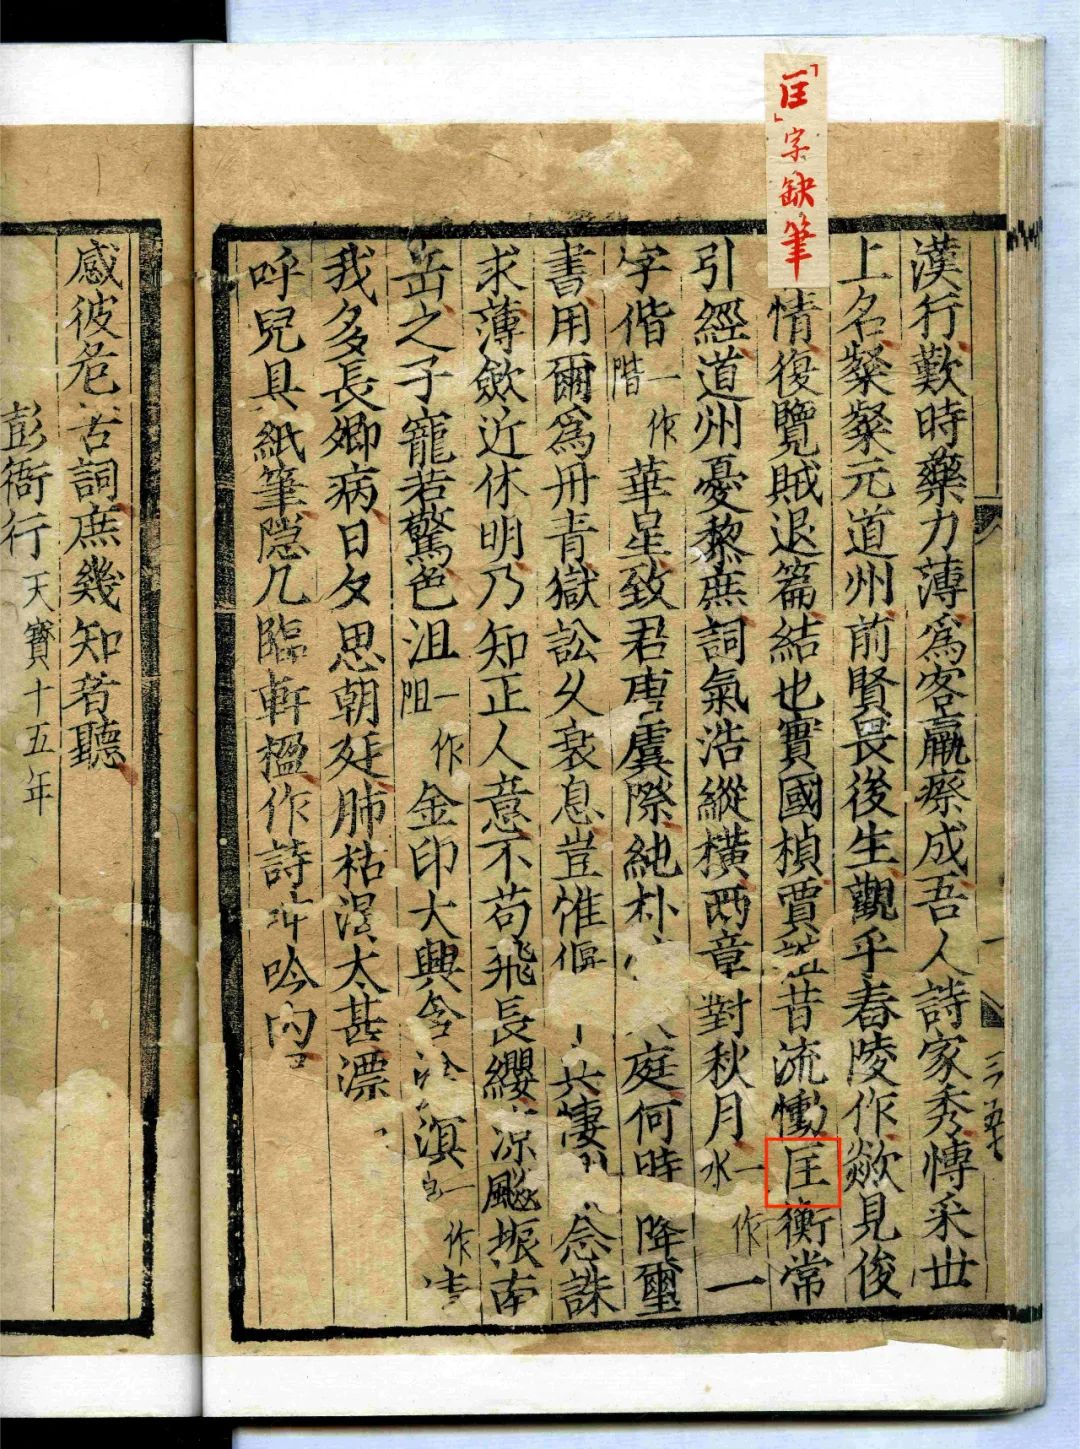 「匡」字缺筆
漢行歎時藥力薄爲客羸瘵成吾人詩家秀博采世
上名粲粲元道州前賢畏後生觀乎舂陵作欻見俊
情復覽賊退篇結也實國楨賈昔流慟匡衡常
引經道州憂黎庶詞氣浩縱橫兩章對秋月一作水一
字偕一作階華星致君唐虞際純朴庭何時降璽
書用爾爲丹青獄訟久衰息豈惟偃共悽念誅
求薄斂近休明乃知正人意不苟飛長纓涼飈振南
岳之子寵若驚色沮一作阻金印大興含滄溟一作清
我多長卿病日夕思朝廷肺枯渴太甚漂
呼兒具紙筆隱几臨軒楹作詩吟內
感彼危苦詞庶幾知者聽
彭衙行天寶十五年